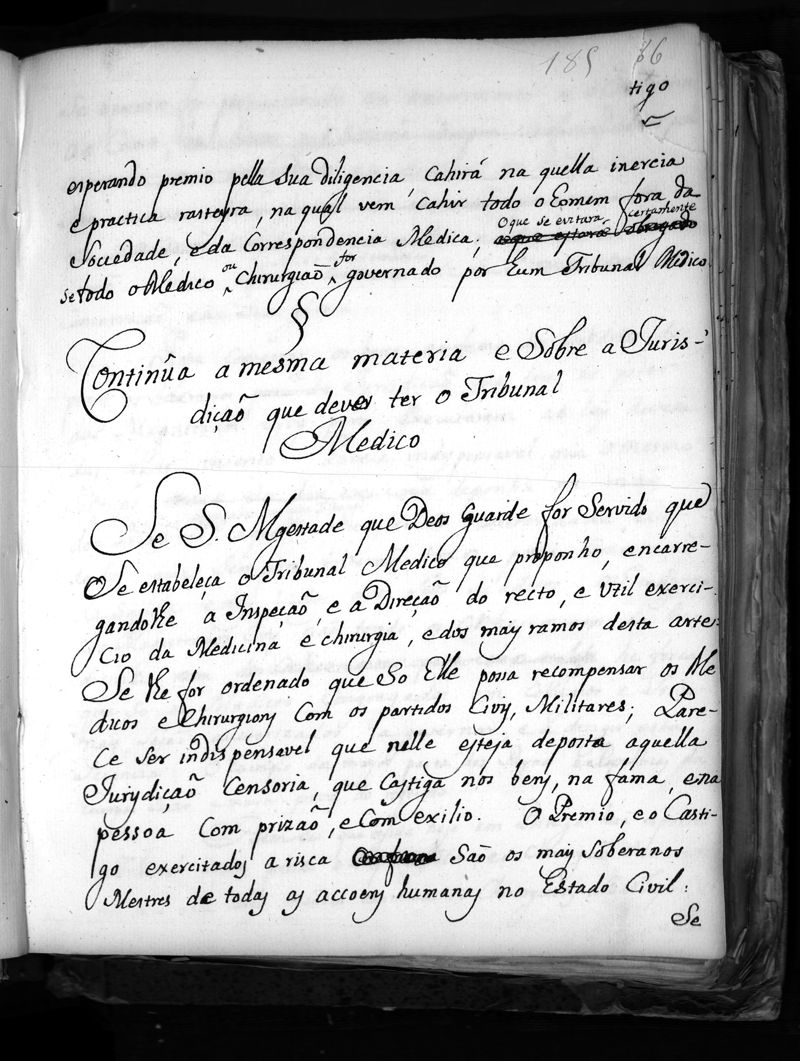 185 86
tigo
esperando premio pella Sua diligencia Cahirá na quella inercia
e practica rasteyra, na qual vem Cahir todo o Eomem fora da
Sociedade, e da Correspondencia Medica; O que se evitara certamente
se todo o Medico ou Chirurgiaõ for governado por Eum Tribunal Medico
§
Continûa a mesma materia e Sobre a Juris-
diçaõ que dever ter o Tribunal
Medico
Se S. Mgestade que Deos Guarde for Servido que
Se estabeleça o Tribunal Medico que proponho, encarre-
gandolhe a Inspeçaõ, e a Direçaõ do recto, e Util exerci-
Cio da Medicina e chirurgia, e dos mays ramos desta arte:
Se lhe for ordenado que So Elle possa recompensar os Me
dicos e Chirurgions Com os partidos Civys, Militares; Pare-
Ce Ser indispensavel que nelle esteja deposta aquella
Jurydiçaõ Censoria, que Castiga nos bens, na fáma, e na
pessoa Com prizaõ, e Com exilio. O Premio, e o Casti-
go exercitados a risca São os mays Soberanos
Mestres de todas as accoens humanas no Estado Civil:
Se